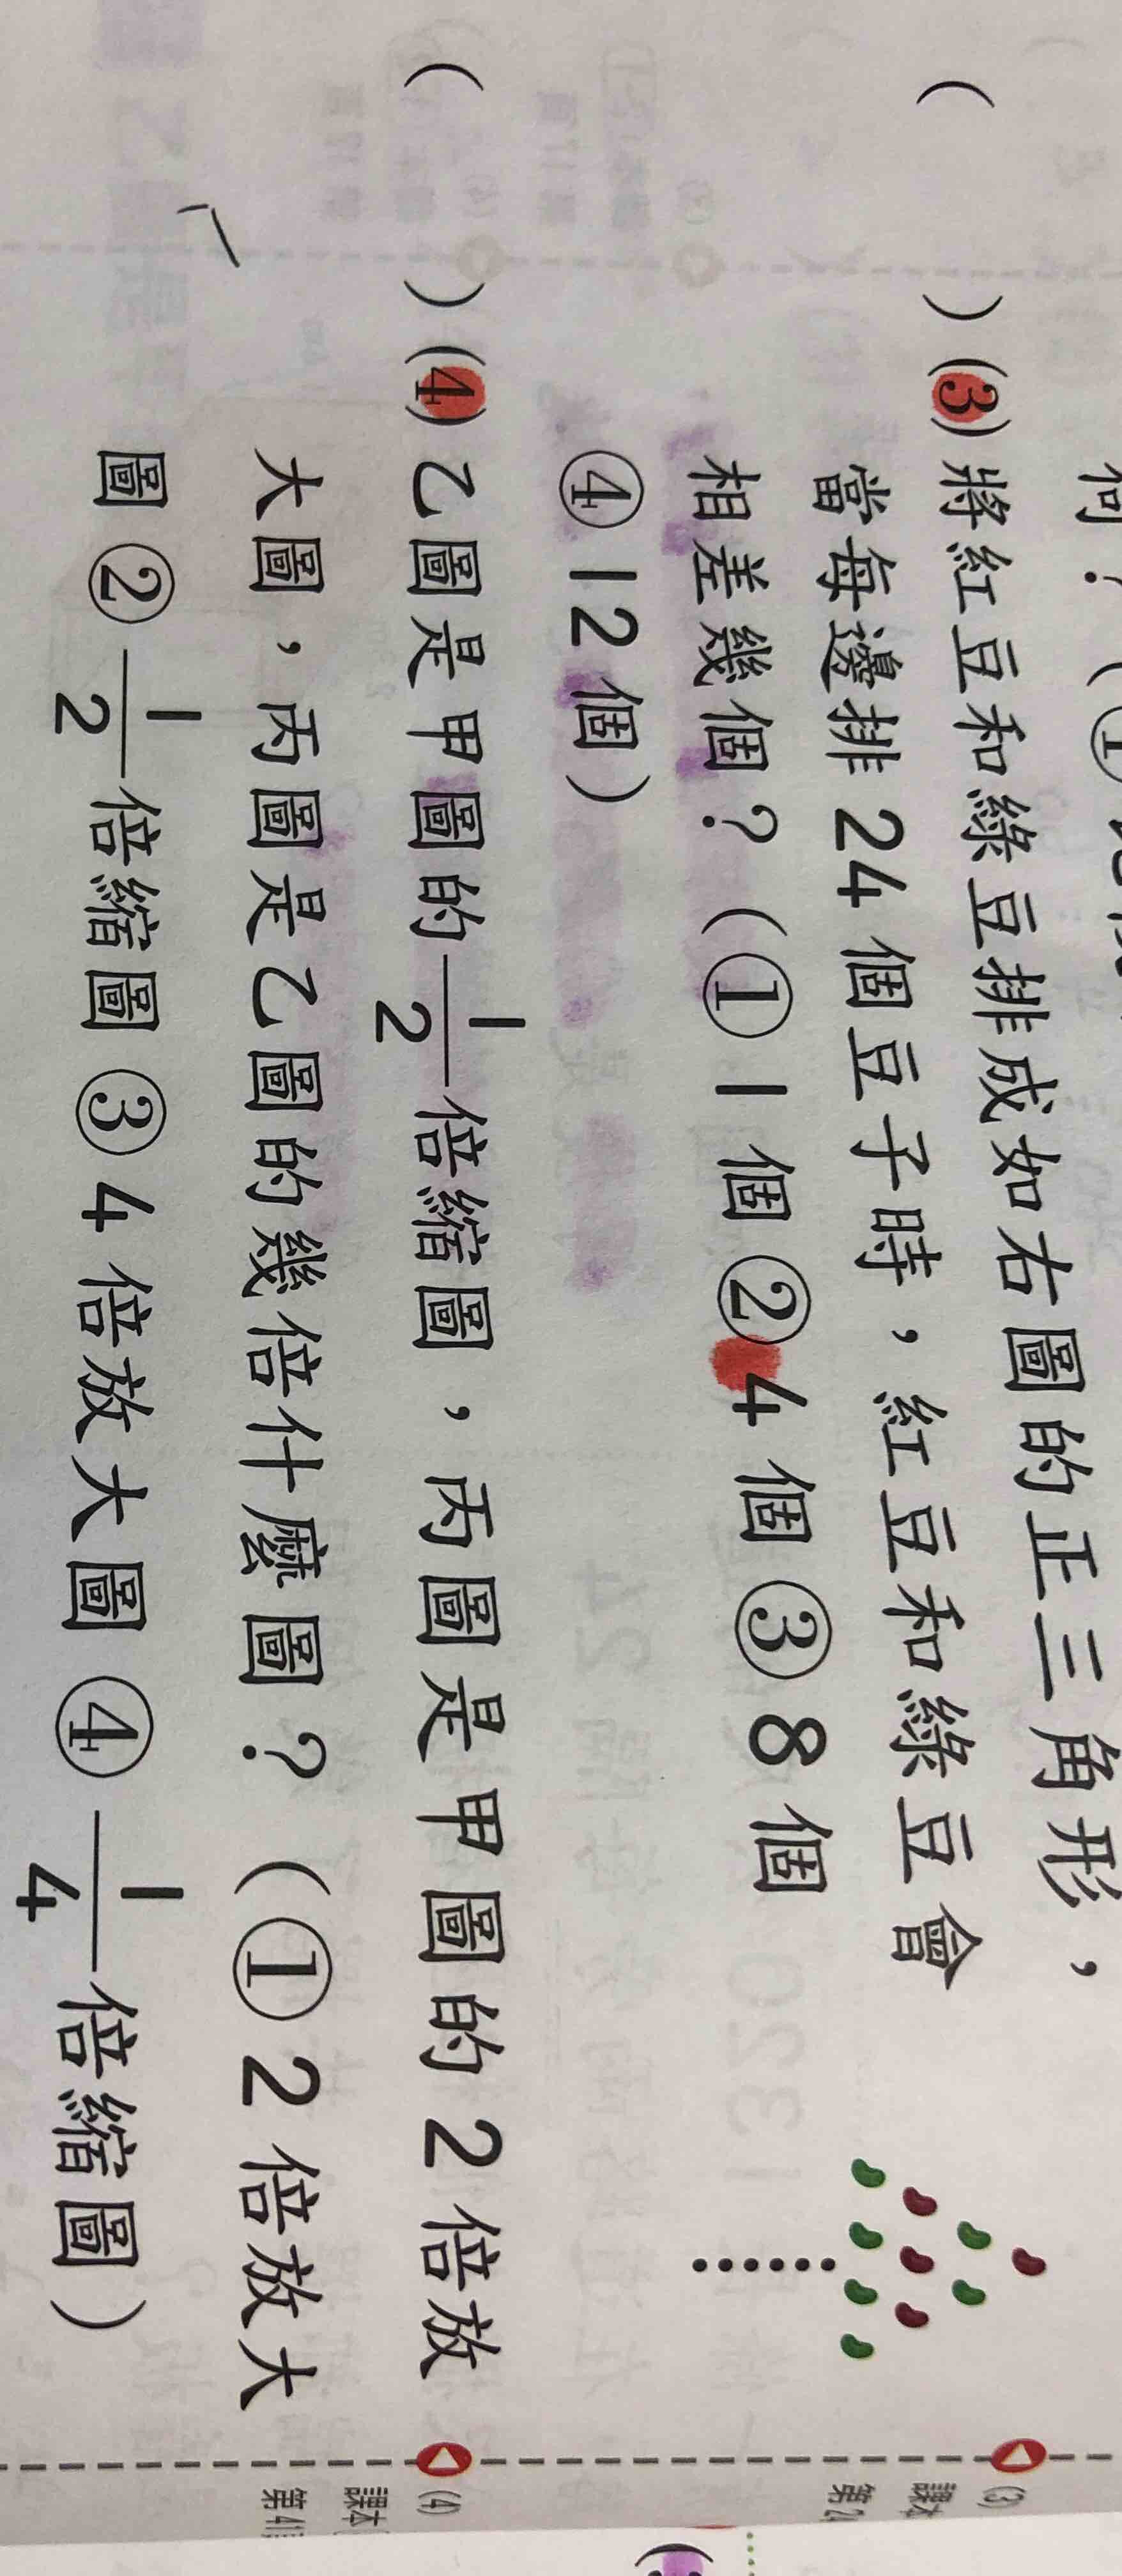 何？（①
( ) (3) 將紅豆和綠豆排成如右圖的正三角形，
當每邊排 24 個豆子時，紅豆和綠豆會
相差幾個？（① 1 個 ② 4 個 ③ 8 個
④ 12 個）
( ) (4) 乙圖是甲圖的 1/2 倍縮圖，丙圖是甲圖的 2 倍放
大圖，丙圖是乙圖的幾倍什麼圖？（① 2 倍放大
圖 ② 1/2 倍縮圖 ③ 4 倍放大圖 ④ 1/4 倍縮圖）
(3)
課本
第2
(4)
課本
第41